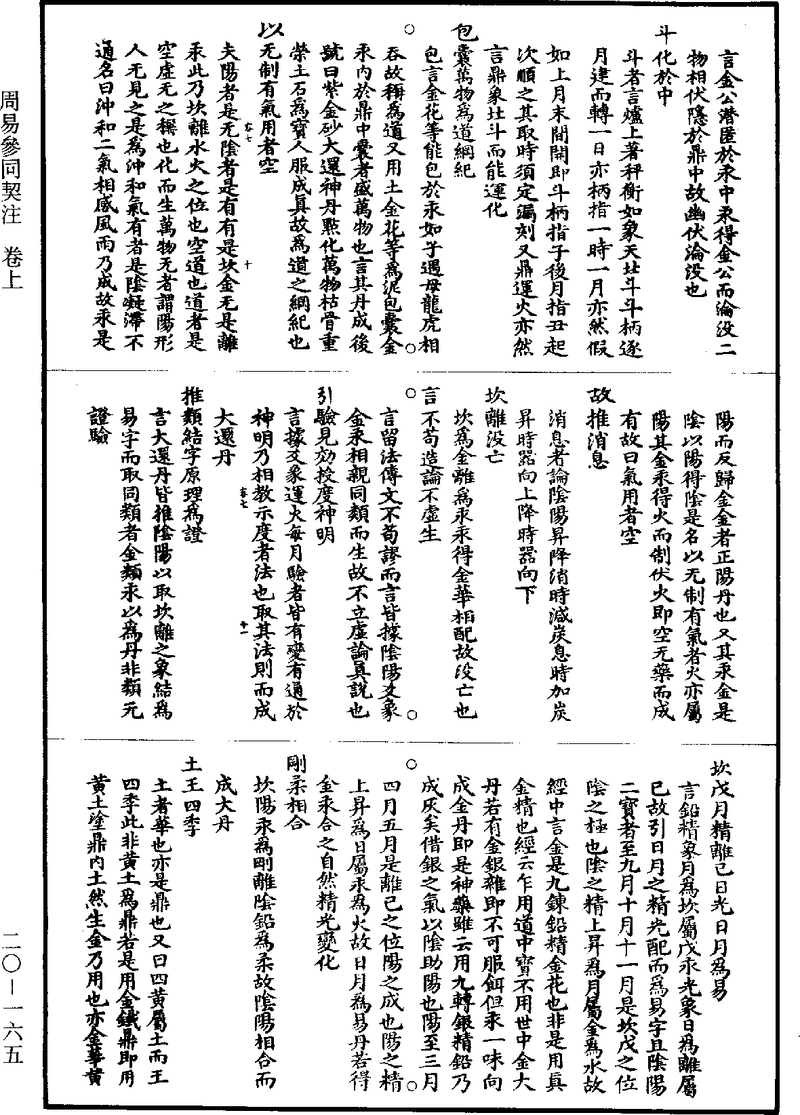 周易參同契注　卷上
二〇—一六五
言金公潛匿於汞中汞得金公而淪沒二
物相伏隱於鼎中故幽伏淪沒也
斗化於中
斗者言爐上著秤衡如象天北斗斗柄逐
月建而轉一日亦柄指一時一月亦然假
如上月末間開即斗柄指子後月指丑起
次順之其取時須定漏刻又鼎運火亦然
言鼎象北斗而能運化
包囊萬物為道綱紀
包言金花等能包於汞如子遇母龍虎相
吞故稱為道又用土金花等為泥包囊金
汞內於鼎中囊者盛萬物也言其丹成後
號曰紫金砂大還神丹點化萬物枯骨重
榮土石為寶人服成真故為道之綱紀也
以无制有氣用者空
夫陽者是无陰者是有有是坎金无是離
汞此乃坎離水火之位也空道也道者是
空虛无之稱也化而生萬物无者謂陽形
人无見之是為沖和氣有者是陰凝滯不
通名曰沖和二氣相感風雨乃成故汞是
陽而反歸金金者正陽丹也又其汞金是
陰以陽得陰是名以无制有氣者火亦屬
陽其金汞得火而制伏火即空无藥而成
有故曰氣用者空
故推消息
消息者論陰陽昇降消時減炭息時加炭
昇時器向上降時器向下
坎離没亡
坎為金離為汞汞得金華相配故没亡也
言不苟造論不虛生
言留法傳文不苟謬而言皆據陰陽爻象
金汞相親同類而生故不立虛論真說也
引驗見効校度神明
言據爻象運火每月驗者皆有變有通於
神明乃相教示度者法也取其法則而成
大還丹
推類結字原理為證
言大還丹皆推陰陽以取坎離之象結為
易字而取同類者金類汞以為丹非類无
證驗
坎戊月精離己日光日月為易
言鉛精象月為坎屬戊汞光象日為離屬
己故引日月之精光配而為易字且陰陽
二寶者至九月十月十一月是坎戊之位
陰之極也陰之精上昇為月屬金為水故
經中言金是九鍊鉛精金花也非是用真
金精也經云乍用道中寶不用世中金大
丹若有金銀雜即不可服餌但汞一味向
成金丹即是神藥雖云用九轉銀精鉛乃
成灰矣借銀之氣以陰助陽也陽至三月
四月五月是離己之位陽之成也陽之精
上昇為日屬汞為火故日月為易丹若得
金汞合之自然精光變化
剛柔相合
坎陽汞為剛離陰鉛為柔故陰陽相合而
成大丹
土王四季
土者華也亦是鼎也又曰四黄屬土而王
四季此非黄土為鼎若是用金鐵鼎即用
黄土塗鼎内土然生金乃用也亦金華黄